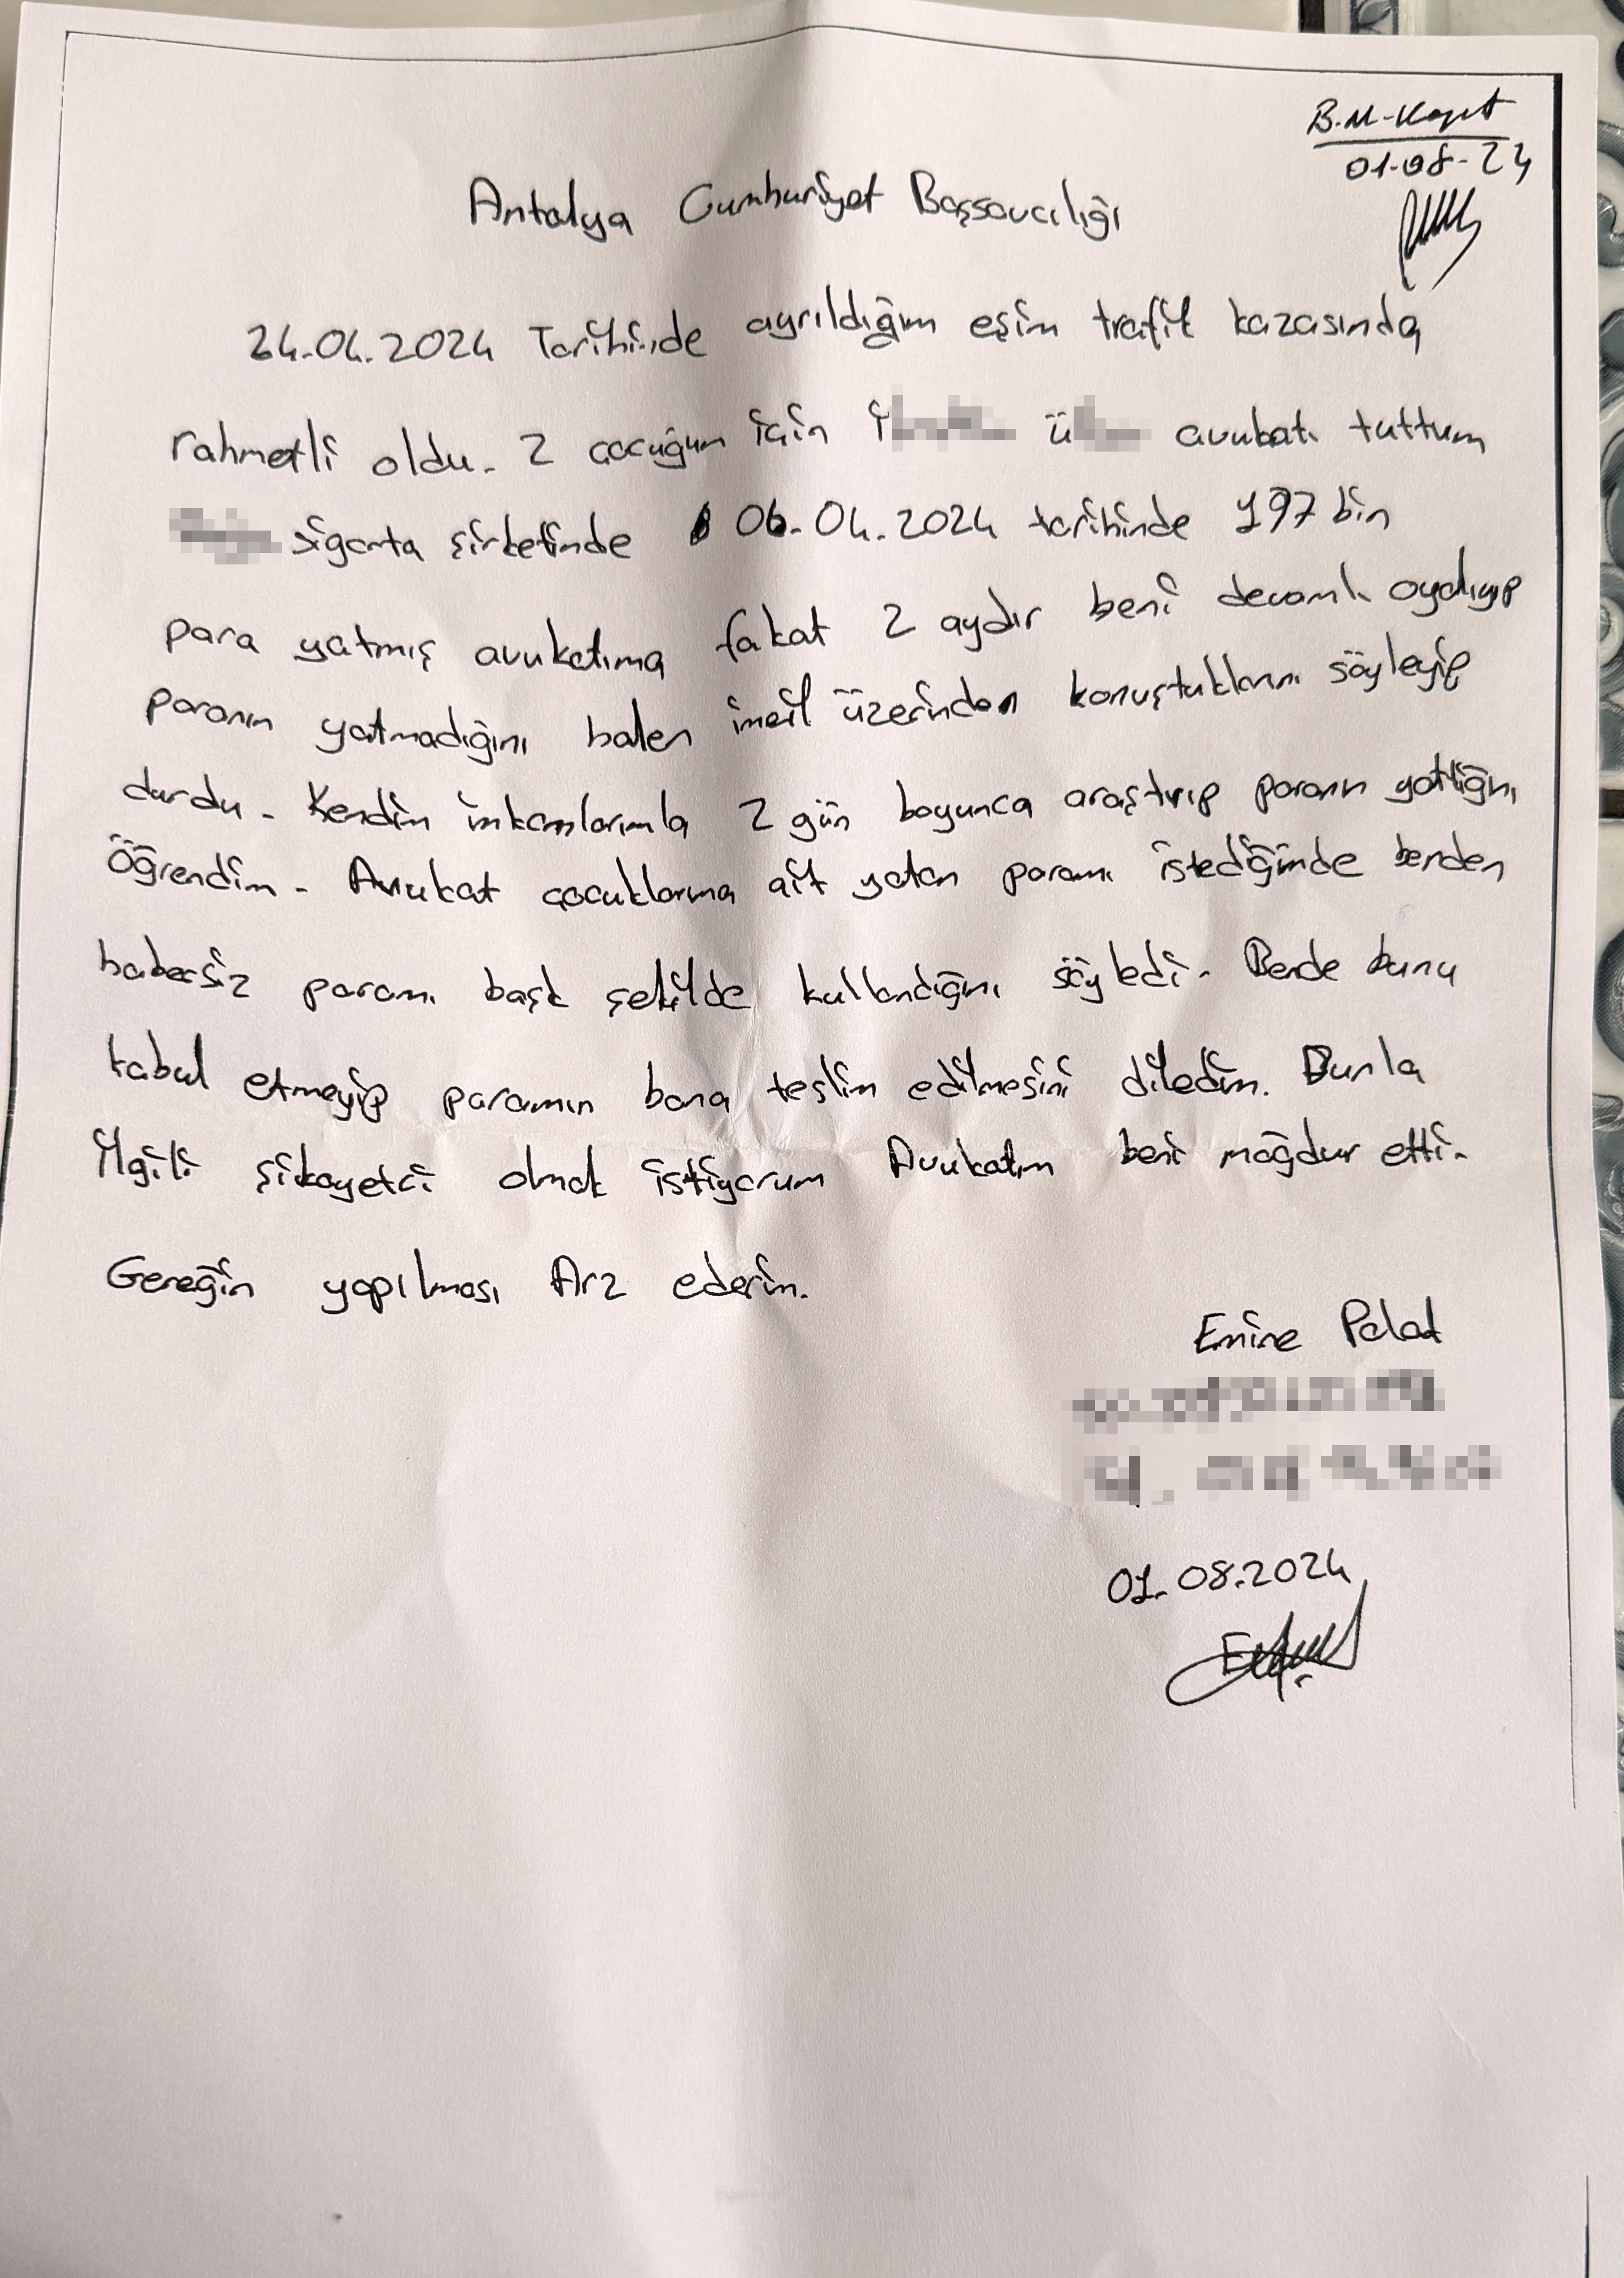 B.M-Kayıt
01-08-24
Antalya Cumhuriyet Başsavcılığı
24.04.2024 Tarihinde ayrıldığım eşim trafik kazasında
rahmetli oldu. 2 çocuğum için avukatı tuttum
sigorta şirketinde 06.04.2024 tarihinde 197 bin
para yatmış avukatıma fakat 2 aydır beni devamlı oyalayıp
paranın yatmadığını halen imeil üzerinden konuştuklarını söyleyip
durdu. Kendim imkanlarımla 2 gün boyunca araştırıp paranın yattığını
Öğrendim. Avukat çocuklarıma ait yatan paramı istediğimde benden
habersiz paramı başk şekilde kullandığını söyledi. Bende bunu
kabul etmeyip paramın bana teslim edilmesini diledim. Bunla
İlgili şikayetci olmak istiyorum Avukatım beni mağdur etti.
Gereğin yapılması Arz ederim.
Emine Polat
01.08.2024